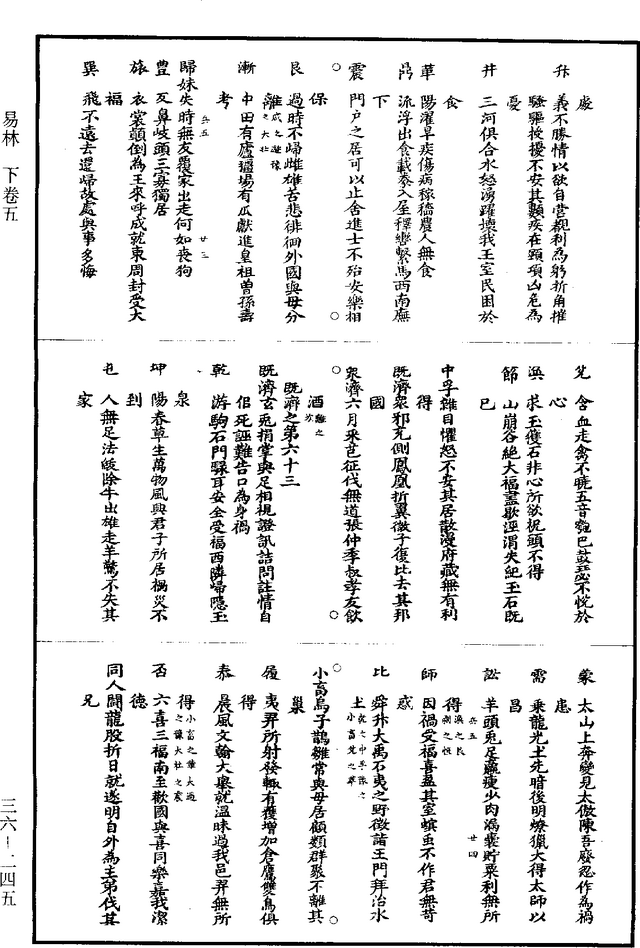 易林　下卷五
處
升　義不勝情以欲自營覬利為躬折角摧
騷驅掙擾不安其顙疾在頸項凶危為
憂
井　三河俱合水怒湧躍壞我王室民困於
食
革　陽燿旱疾傷病稼穡農人無食
鼎　流浮出食載豢入屋釋轡繫馬西南廡
下
震　門戶之居可以止舍進士不殆安樂相
保
艮　過時不歸雌雄苦悲徘徊外國與母分
離　咸之離豫之大壯
漸　中田有廬疆場有瓜獻進皇祖曾孫壽
考
兵五　廿三
歸妹失時無友覆家出走何如喪狗
豐　鼻岐頭三寡獨居
旅　衣裳顛倒為王來呼成就東周封受大
福
巽　飛不遠去還歸故處興事多悔
兌　含血走禽不曉五音瓠巴鼓瑟不悅於
心
渙　求玉獲石非心所欲祝願不得
節　山崩谷絕大福盡歇涇渭失紀玉石既
已
中孚雞目懼怒不安其居散澆府藏無有利
得
既濟衆邪充側鳳凰折翼微子復比去其邦
國
衆濟六月采芑征伐無道張仲季叔孝友飲
酒　離之次
既濟之第六十三
既濟玄兎捐掌與足相視證訊詰問誆情自
佀死誣難告口為身禍
乾　游駒石門騄耳安全受福西隣歸隱玉
泉
坤　陽春草生萬物風興君子所居禍災不
到
屯　人無足法緩除牛出雄走羊驚不失其
家
蒙　太山上奔變見太微陳吾廢忽作為禍
患
需　乘龍光土先暗後明燎獵大得太師以
昌
訟　羊頭兎足羸瘦少肉漏囊貯粟利無所
得　渙之艮剝之恒
兵五　廿四
師　因禍受福喜盈其室螟蟲不作君無苛
惑
比　舜升大禹石夷之野徵詣王門拜治水
土
小畜烏子鵲雛常與母居顧類群聚不離其
巢
履　夷羿所射發輒有獲增加倉鷹雙鳥俱
得
泰　晨風文翰大舉就溫昧過我邑羿無所
得　小畜之革大過之謙大壯之震
否　六喜三福南至歡國與喜同樂嘉我潔
德
同人鬭龍股折日就遂明自外為主弟伐其
兄
三六－二四五